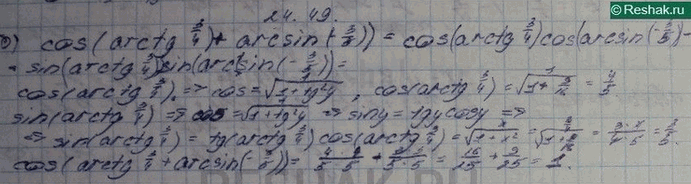 Reshak.ru
24.49.
б) cos(arctg 3/4 + arcsin(-3/5)) = cos(arctg 3/4)cos(arcsin(-3/5)) -
- sin(arctg 3/4)sin(arcsin(-3/5)) =
cos(arctg 3/4) => cos = 1/√(1+tg²y), cos(arctg 3/4) = 1/√(1+9/16) = 4/5
sin(arctg 3/4) => cos = 1/√(1+tg²y) => siny = tgy cosy =>
=> sin(arctg 3/4) = tg(arctg 3/4) cos(arctg 3/4) = x/√(1+x²) = = 3·4/4·5 = 3/5
cos(arctg 3/4 + arcsin(-3/5)) = 4/5 · 4/5 + 3/5 · 3/5 = 16/25 + 9/25 = 1.